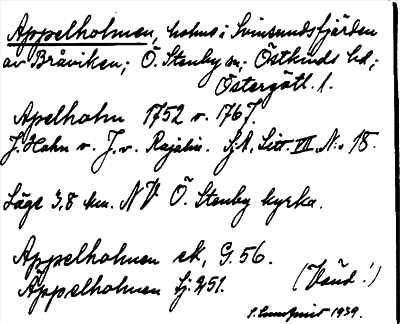 Äppelholmen, holme i Svinsundsfjärden
av Bråviken; Ö. Stenby sn; Östkinds hd;
Östergötl. l.
Apelholm 1752 o. 1767.
J. Hahn o. J. v. Rajalin. S.A. Litr. VII. No 18.
Läge 3,8 km. NV Ö. Stenby kyrka.
Äppelholmen ek, G. 56.
Äppelholmen Sj. 251. (Vänd!)
1939.